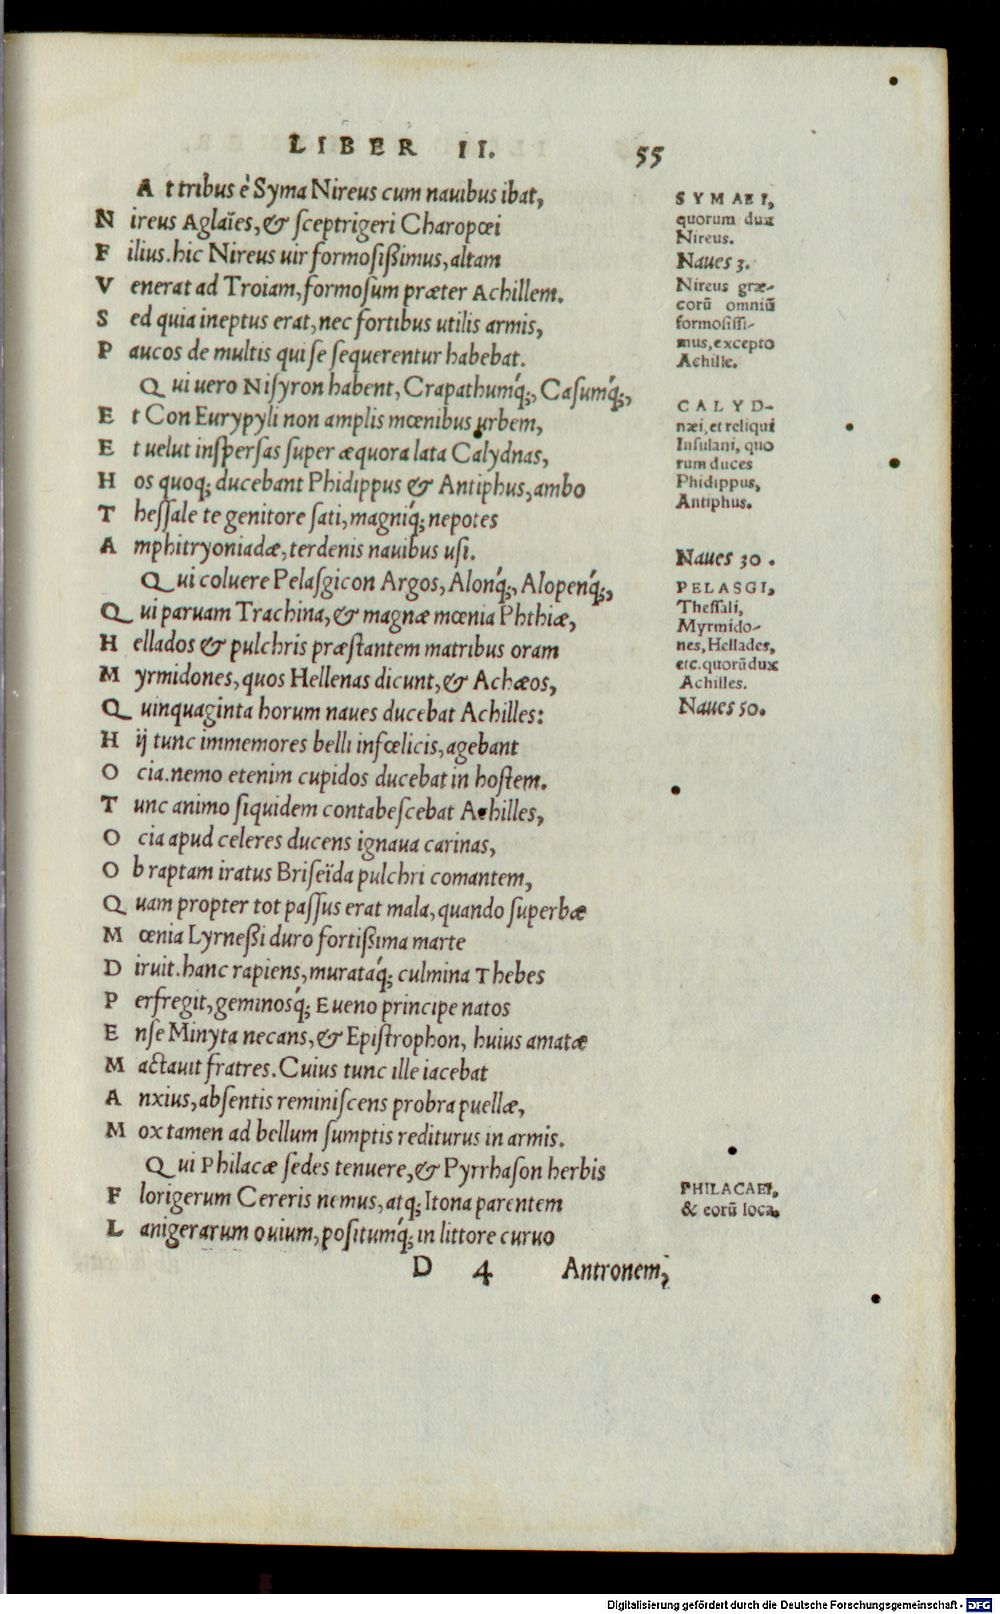 LIBER II. 55
At tribus è Syma Nireus cum nauibus ibat,
Nireus Aglaïes, & sceptrigeri Charopœi
Filius. hic Nireus uir formosißimus, altam
Venerat ad Troiam, formosum præter Achillem.
Sed quia ineptus erat, nec fortibus utilis armis,
Paucos de multis qui se sequerentur habebat.
Qui uero Nisyron habent, Crapathumq́;, Casumq́;,
Et Con Eurypyli non amplis mœnibus urbem,
Et uelut inspersas super æquora lata Calydnas,
Hos quoq; ducebant Phidippus & Antiphus, ambo
Thessale te genitore sati, magniq́; nepotes
Amphitryoniadæ, terdenis nauibus usi.
Qui coluere Pelasgicon Argos, Alonq́;, Alopenq́;,
Qui paruam Trachina, & magnæ mœnia Phthiæ,
Hellados & pulchris præstantem matribus oram
Myrmidones, quos Hellenas dicunt, & Achæos,
Quinquaginta horum naues ducebat Achilles:
Hij tunc immemores belli infœlicis, agebant
Ocia. nemo etenim cupidos ducebat in hostem.
Tunc animo siquidem contabescebat Achilles,
Ocia apud celeres ducens ignaua carinas,
Ob raptam iratus Briseïda pulchri comantem,
Quam propter tot passus erat mala, quando superbæ
Mœnia Lyrneßi duro fortißima marte
Diruit. hanc rapiens, murataq́; culmina Thebes
Perfregit, geminosq́; Eueno principe natos
Ense Minyta necans, & Epistrophon, huius amatæ
Mactauit fratres. Cuius tunc ille iacebat
Anxius, absentis reminiscens probra puellæ,
Mox tamen ad bellum sumptis rediturus in armis.
Qui Philacæ sedes tenuere, & Pyrrhason herbis
Florigerum Cereris nemus, atq; Itona parentem
Lanigerarum ouium, positumq́; in littore curuo
D 4 Antronem,
SYMAEI,
quorum dux
Nireus.
Naues 3.
Nireus græ-
corũ omniũ
formosissi-
mus, excepto
Achille.
CALYD-
næi, et reliqui
Insulani, quo
rum duces
Phidippus,
Antiphus.
Naues 30.
PELASGI,
Thessali,
Myrmido-
nes, Hellades,
etc. quorũ dux
Achilles.
Naues 50.
PHILACAEI,
& eorũ loca.
Digitalisierung gefördert durch die Deutsche Forschungsgemeinschaft - DFG